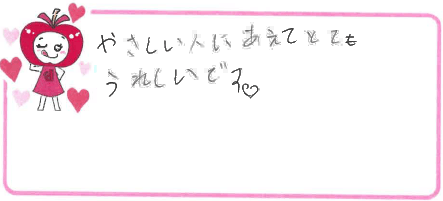 やさしい人にあえてとても
うれしいです♡